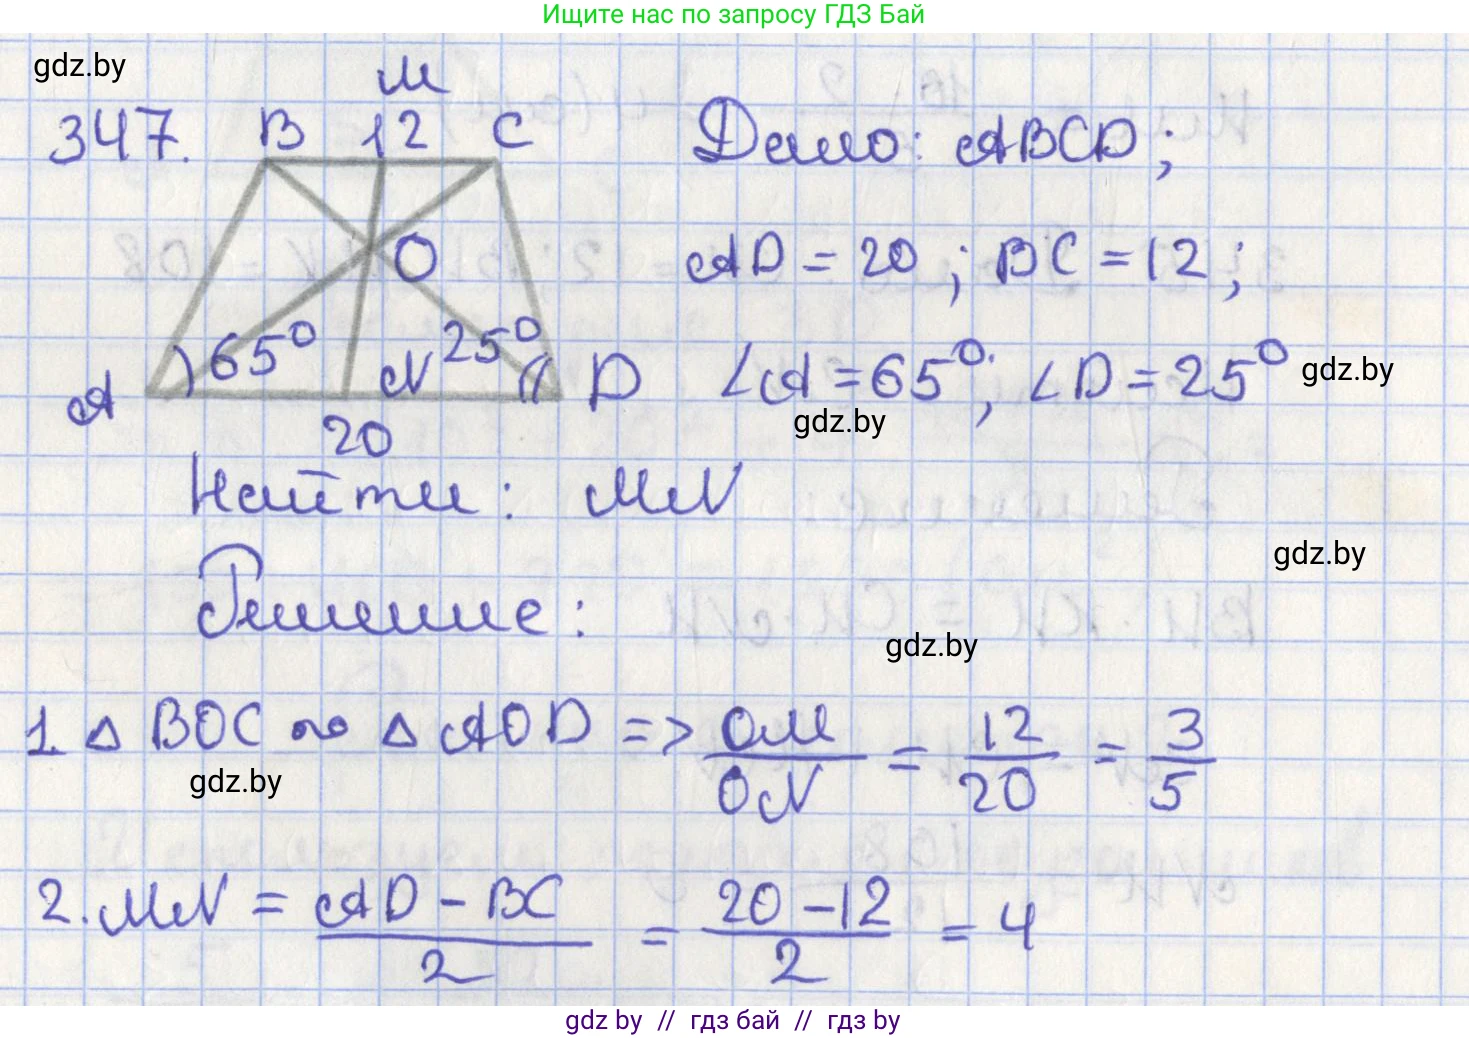 Ищите нас по запросу ГДЗ Бай
gdz.by
M
347. B 12 C Дано: ABCD;
O AD = 20; BC = 12;
A 65° N 25° D ∠A = 65°; ∠D = 25° gdz.by
gdz.by
20
Найти: MN
gdz.by
Решение:
gdz.by
1. △ BOC ∾ △ AOD => OM/ON = 12/20 = 3/5
gdz.by
2. MN = AD - BC/2 = 20 - 12/2 = 4
gdz by // гдз бай // гдз by